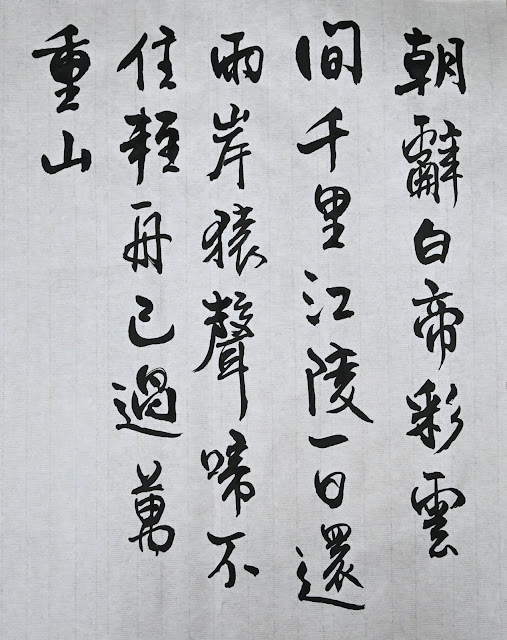 朝辭白帝彩雲
間千里江陵一日還
兩岸猿聲啼不
住輕舟已過萬
重山